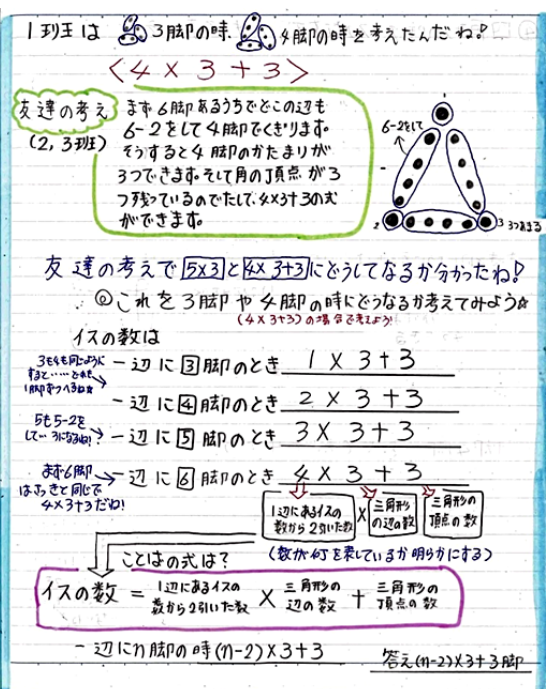 1班は 3脚の時、4脚の時を考えたんだね!
<4×3+3>
友達の考え
(2,3班)
まず6脚あるうちでどこの辺も
6-2をして4脚でくぎります。
そうすると4脚のかたまりが
3つできます。そして角の頂点が3
つ残っているのでたして、4×3+3の式
ができます。
6-2をして
2
3 3つあまる
友達の考えで 5×3 と 4×3+3 にどうしてなるか分かったね!
◎これを3脚や4脚の時にどうなるか考えてみよう☆
(4×3+3)の場合で考えよう!
イスの数は
3も4も同じように
すると……
一辺に 3 脚のとき 1×3+3
一辺に 4 脚のとき 2×3+3
5も5-2を
して…3になるね!
一辺に 5 脚のとき 3×3+3
まず6脚
はさっきと同じで
4×3+3だね!
一辺に 6 脚のとき 4×3+3
1辺にあるイスの
数から2引いた数
×
三角形
の辺の数
三角形の
頂点の数
(数が何を表しているか明らかにする)
ことばの式は?
イスの数 = 1辺にあるイスの数から2引いた数 × 三角形の辺の数 + 三角形の頂点の数
一辺にn脚の時(n-2)×3+3
答え(n-2)×3+3脚